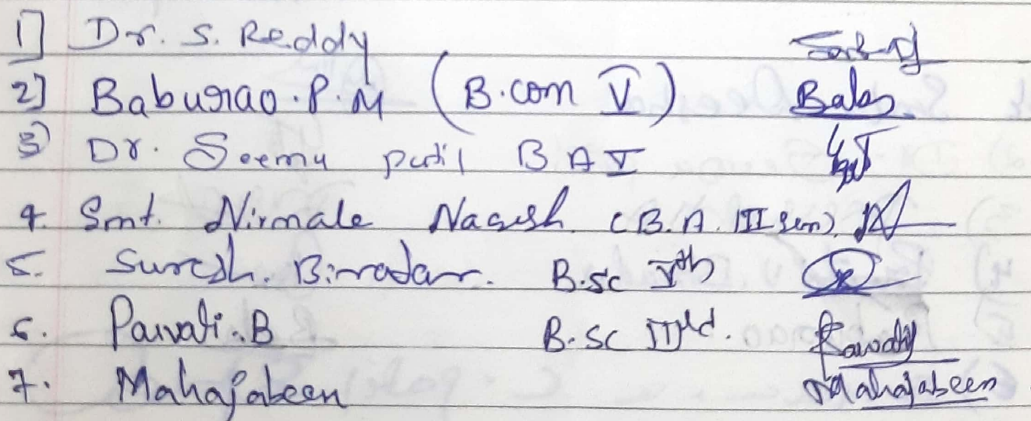 1] Dr. S. Reddy
2] Baburao.P.M (B.com V) Babs
3) Dr. Seema patil B A V
4. Smt. Nirmale Nagesh (B.A. III sem)
5. Suresh. Biradar. B.sc Vth
6. Parvati.B B.sc IIIrd. Parvati
7. Mahajabeen Mahajabeen